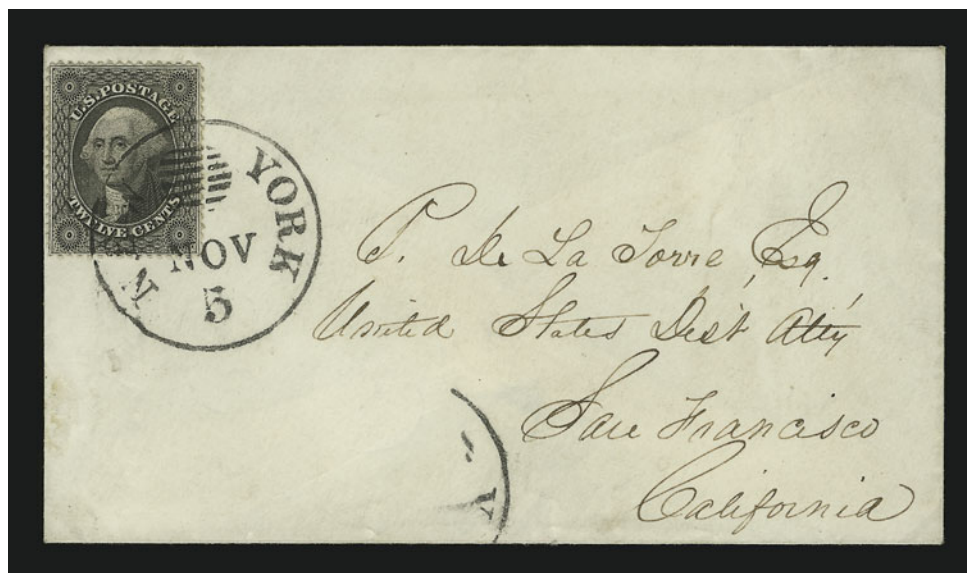 U.S. POSTAGE
TWELVE CENTS
NEW YORK
NOV
5
P. De La Torre, Esq.
United States Dist Atty
San Francisco
California
Y